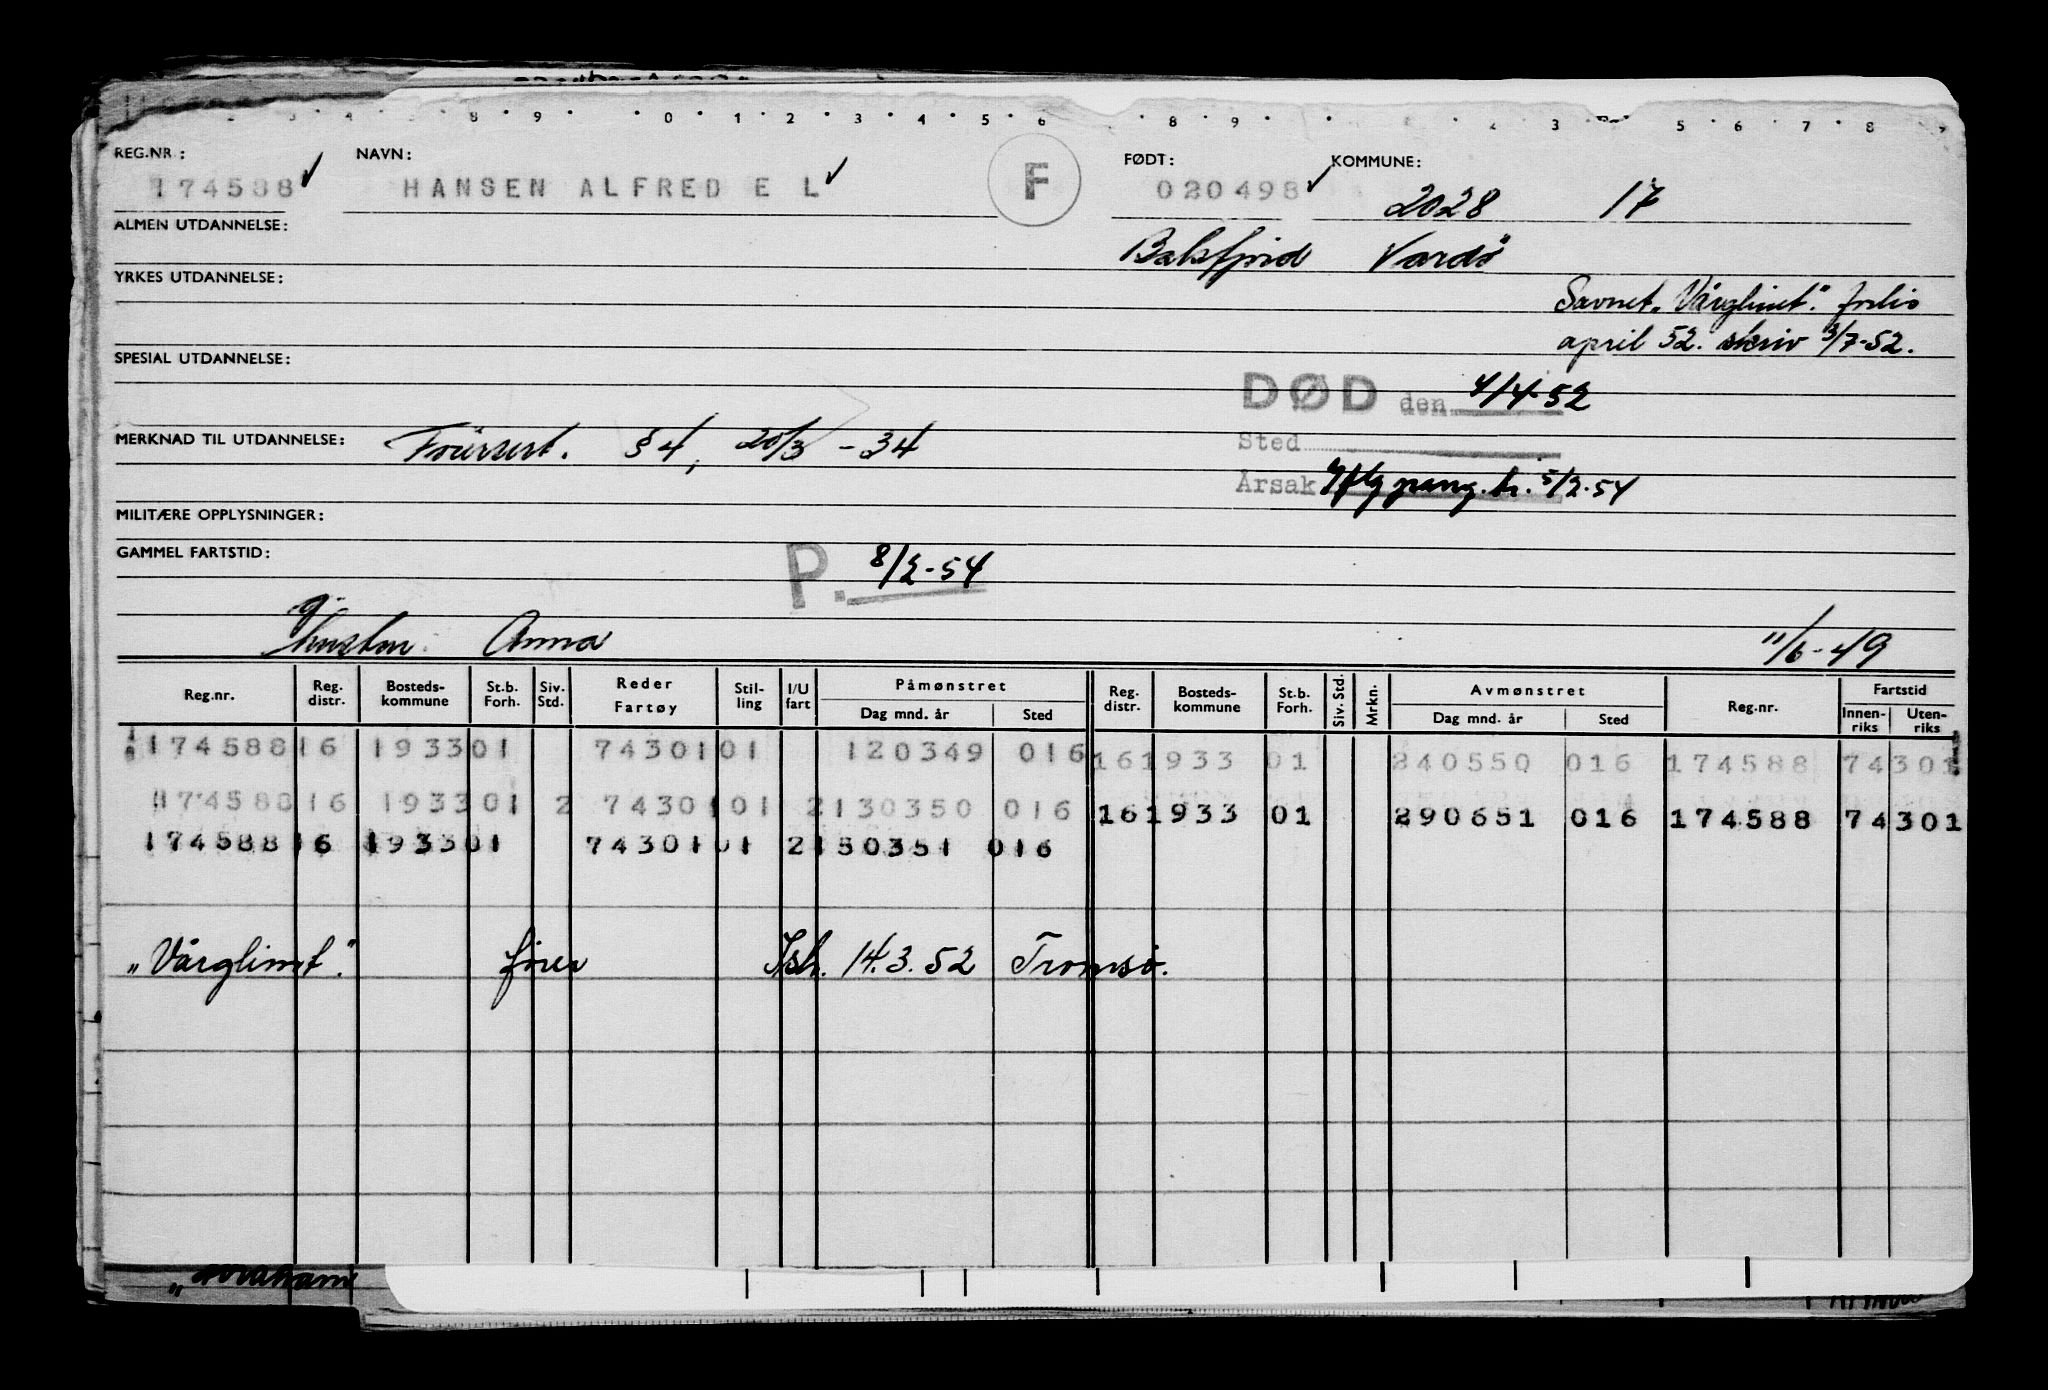 REG.NR: NAVN: FØDT: KOMMUNE:
174588 HANSEN ALFRED E L F 020498 2028 17
ALMEN UTDANNELSE:
Balsfjord Vardö
YRKES UTDANNELSE:
Savnet „Vårglimt". forlis
april 52. skriv 3/7-52.
SPESIAL UTDANNELSE:
DØD den 4/4-52
MERKNAD TIL UTDANNELSE: §4, 20/3-34
Sted
Årsak 5/2-54
MILITÆRE OPPLYSNINGER:
GAMMEL FARTSTID:
P. 8/2-54
g. hustru: Anna 11/6-49
Reg.nr. Reg. distr. Bosteds-kommune St.b. Forh. Siv. Std. Reder Fartøy Stil-ling I/U fart Påmønstret Dag mnd. år Sted Reg. distr. Bosteds-kommune St.b. Forh. Siv. Std. Mrkn. Avmønstret Dag mnd. år Sted Reg.nr. Fartstid Innen-riks Uten-riks
174588 16 1933 01 74301 01 120349 016 16 1933 01 240550 016 174588 74301
174588 16 1933 01 2 74301 01 2 130350 016 16 1933 01 290651 016 174588 74301
174588 16 1933 01 74301 01 2 150351 016
„Vårglimt". fører Ish. 14.3.52 Tromsø.